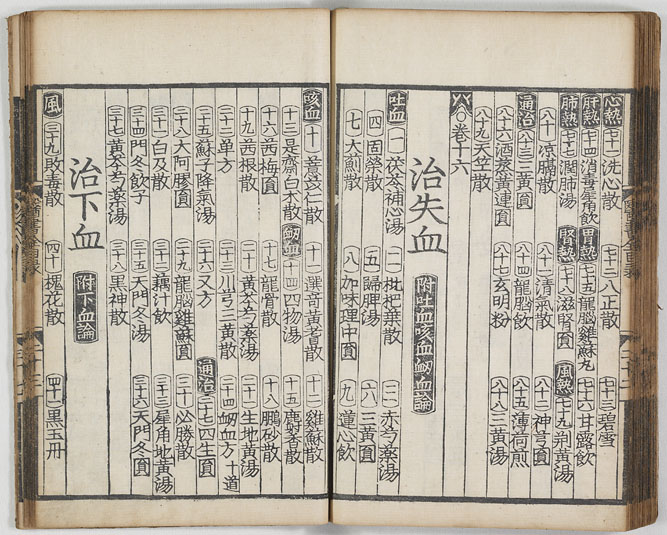 心熱 七十一 洗心散 七十二 八正散 七十三 碧雪
肝熱 七十四 消毒犀角飲 胃熱 七十五 龍腦雞蘇丸 七十六 甘露飲
肺熱 七十七 潤肺湯 腎熱 七十八 滋腎圓 風熱 七十九 荆黃湯
八十 涼膈散 八十一 清氣散 八十二 神芎圓
通治 八十三 三黃圓 八十四 龍腦飲 八十五 薄荷煎
八十六 酒蒸黃連圓 八十七 玄明粉 八十八 三黃湯
八十九 天竺散
卷十六
治失血 附吐血咳血衂血論
吐血 一 茯苓補心湯 二 枇杷葉散 三 赤芍藥湯
四 固榮散 五 歸脾湯 六 三黃圓
七 大薊散 八 加味理中圓 九 蓮心飲
咳血 十 薏苡仁散 十一 選奇黃耆散 十二 雞蘇散
十三 是齋白朮散 衂血 十四 四物湯 十五 麝香散
十六 茜梅圓 十七 龍骨散 十八 鵬砂散
十九 茜根散 二十 黃芩芍藥湯 二十一 生地黃湯
二十二 單方 二十三 川芎三黃散 二十四 衂血方 十道
二十五 蘇子降氣湯 二十六 又方 通治 二十七 四生圓
二十八 大阿膠圓 二十九 龍腦雞蘇圓 三十 必勝散
三十一 白及散 三十二 藕汁飲 三十三 犀角地黃湯
三十四 門冬飲子 三十五 天門冬湯 三十六 天門冬圓
三十七 黃芩芍藥湯 三十八 黑神散
治下血 附下血論
風 三十九 敗毒散 四十 槐花散 四十一 黑玉丹